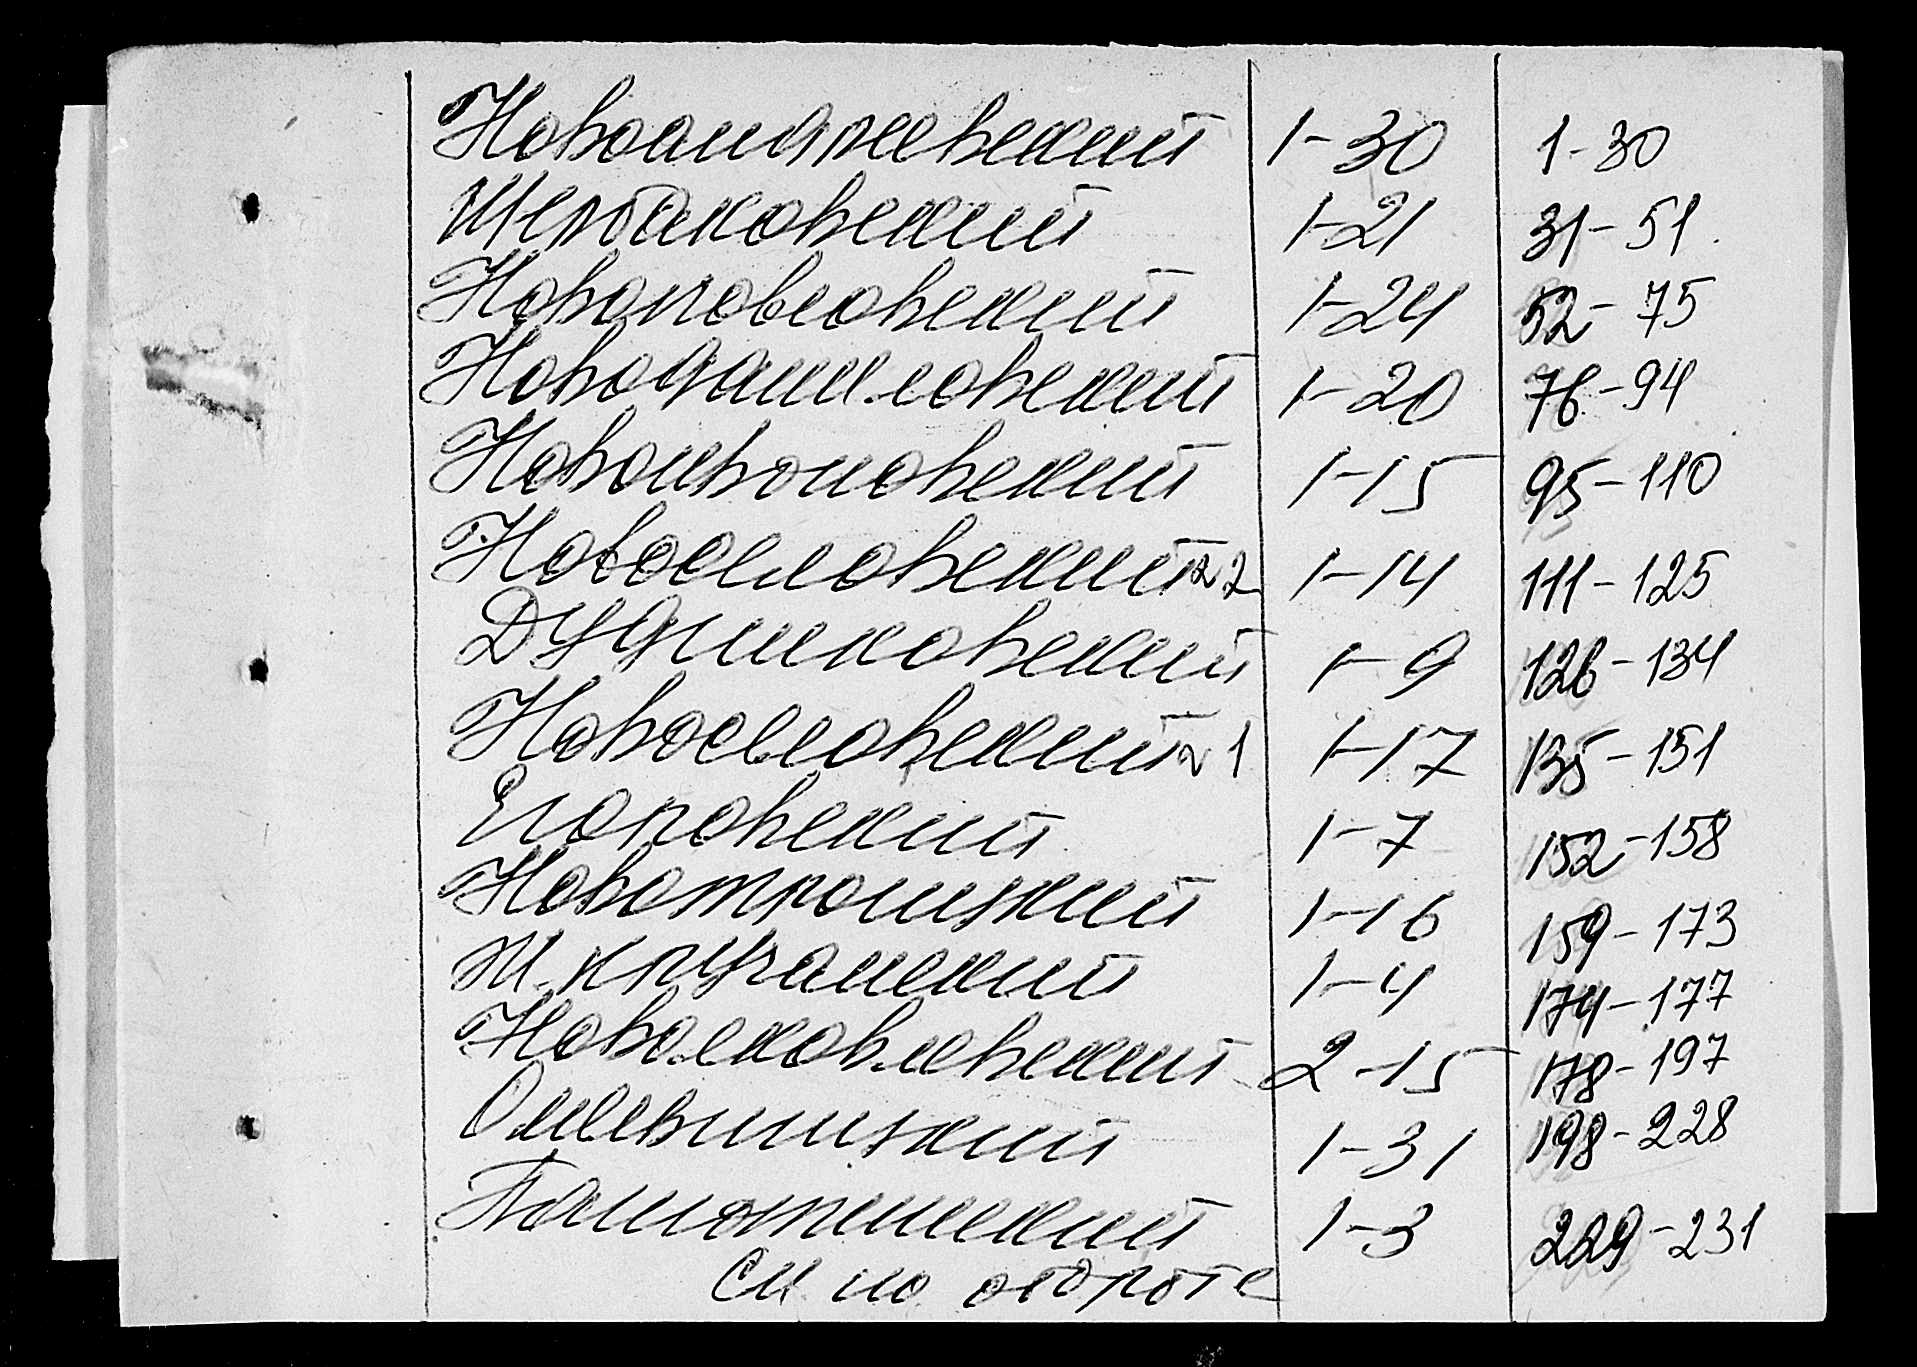 Новоандреевский 1-30 1-30
Щербаковский 1-21 31-51
Новопавловский 1-24 52-75
Новоданиловский 1-20 76-94
Новоивановский 1-15 95-110
Новоселовский 2 1-14 111-125
Дудниковский 1-9 126-134
Новоселовский 1 1-17 135-151
Егоровский 1-7 152-158
Новотроицкий 1-16 159-173
1-4 174-177
Новояковлевский 2-15 178-197
1-31 198-228
1-3 229-231
См на обороте